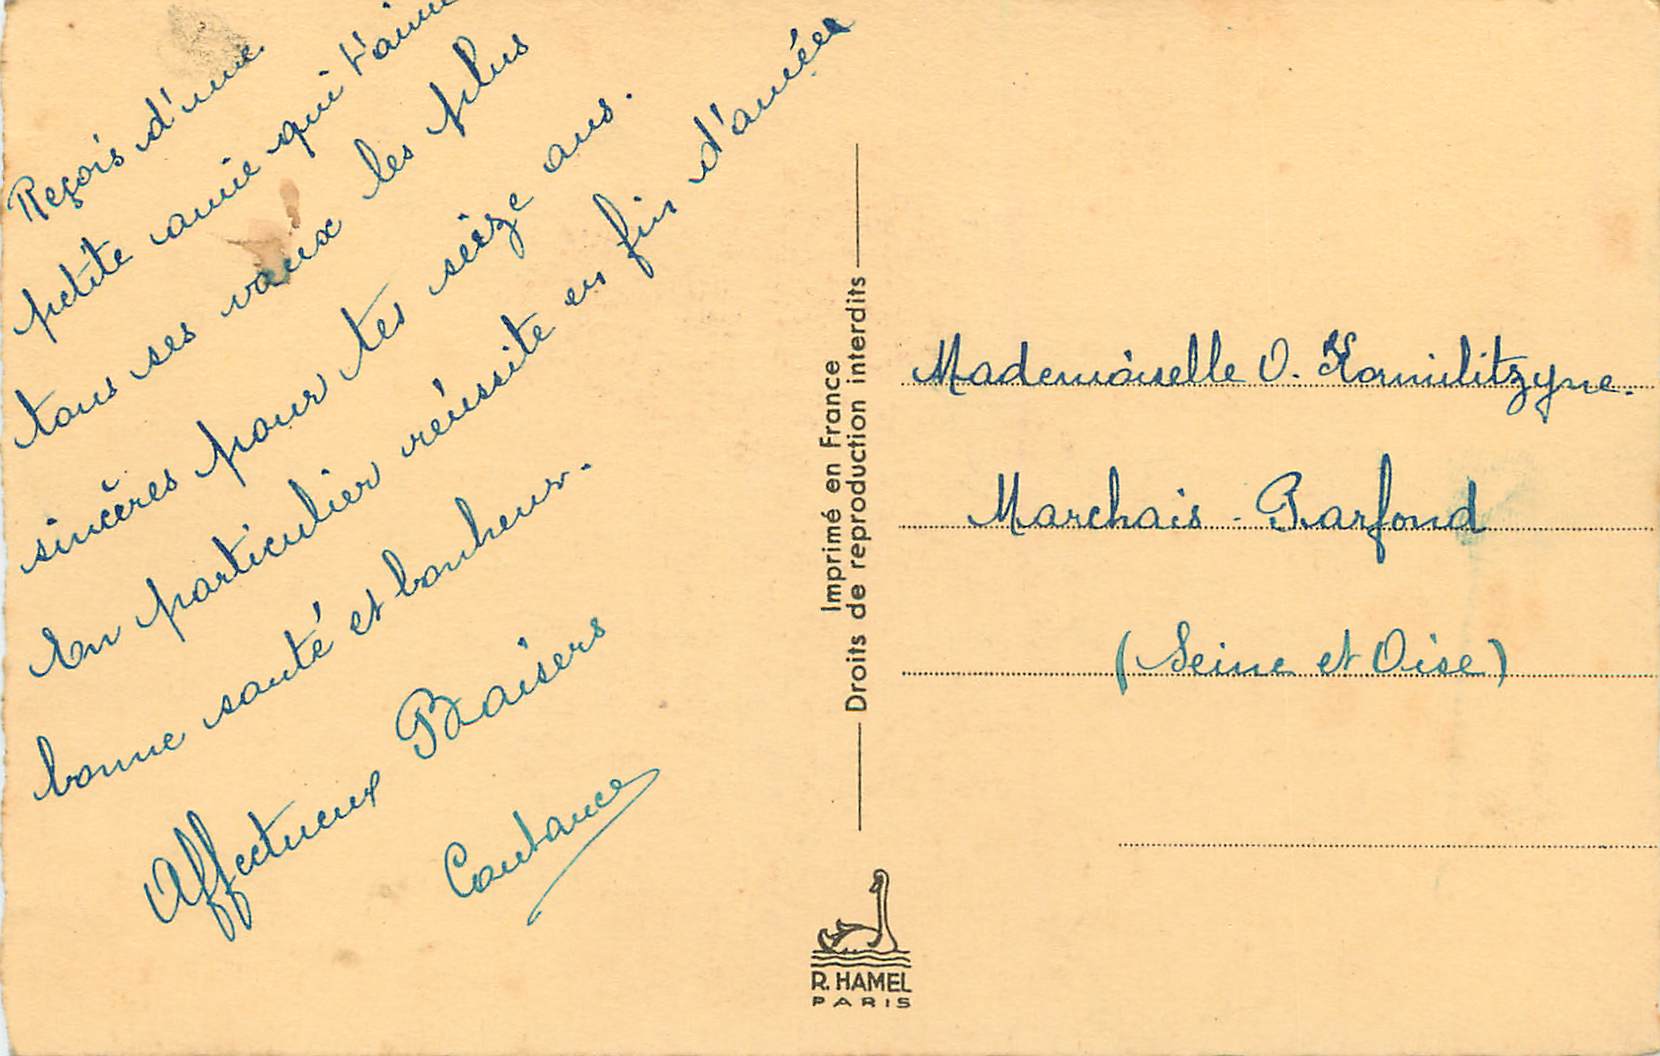 Reçois d'une
petite amie qui t'aime
tous ses vœux les plus
sincères pour tes seize ans.
En particulier réussite en fin d'année
bonne santé et bonheur.
Affectueux Baisers
Imprimé en France
Droits de reproduction interdits
Mademoiselle O.
Marchais - Parfond
(Seine et Oise)
R. HAMEL
PARIS